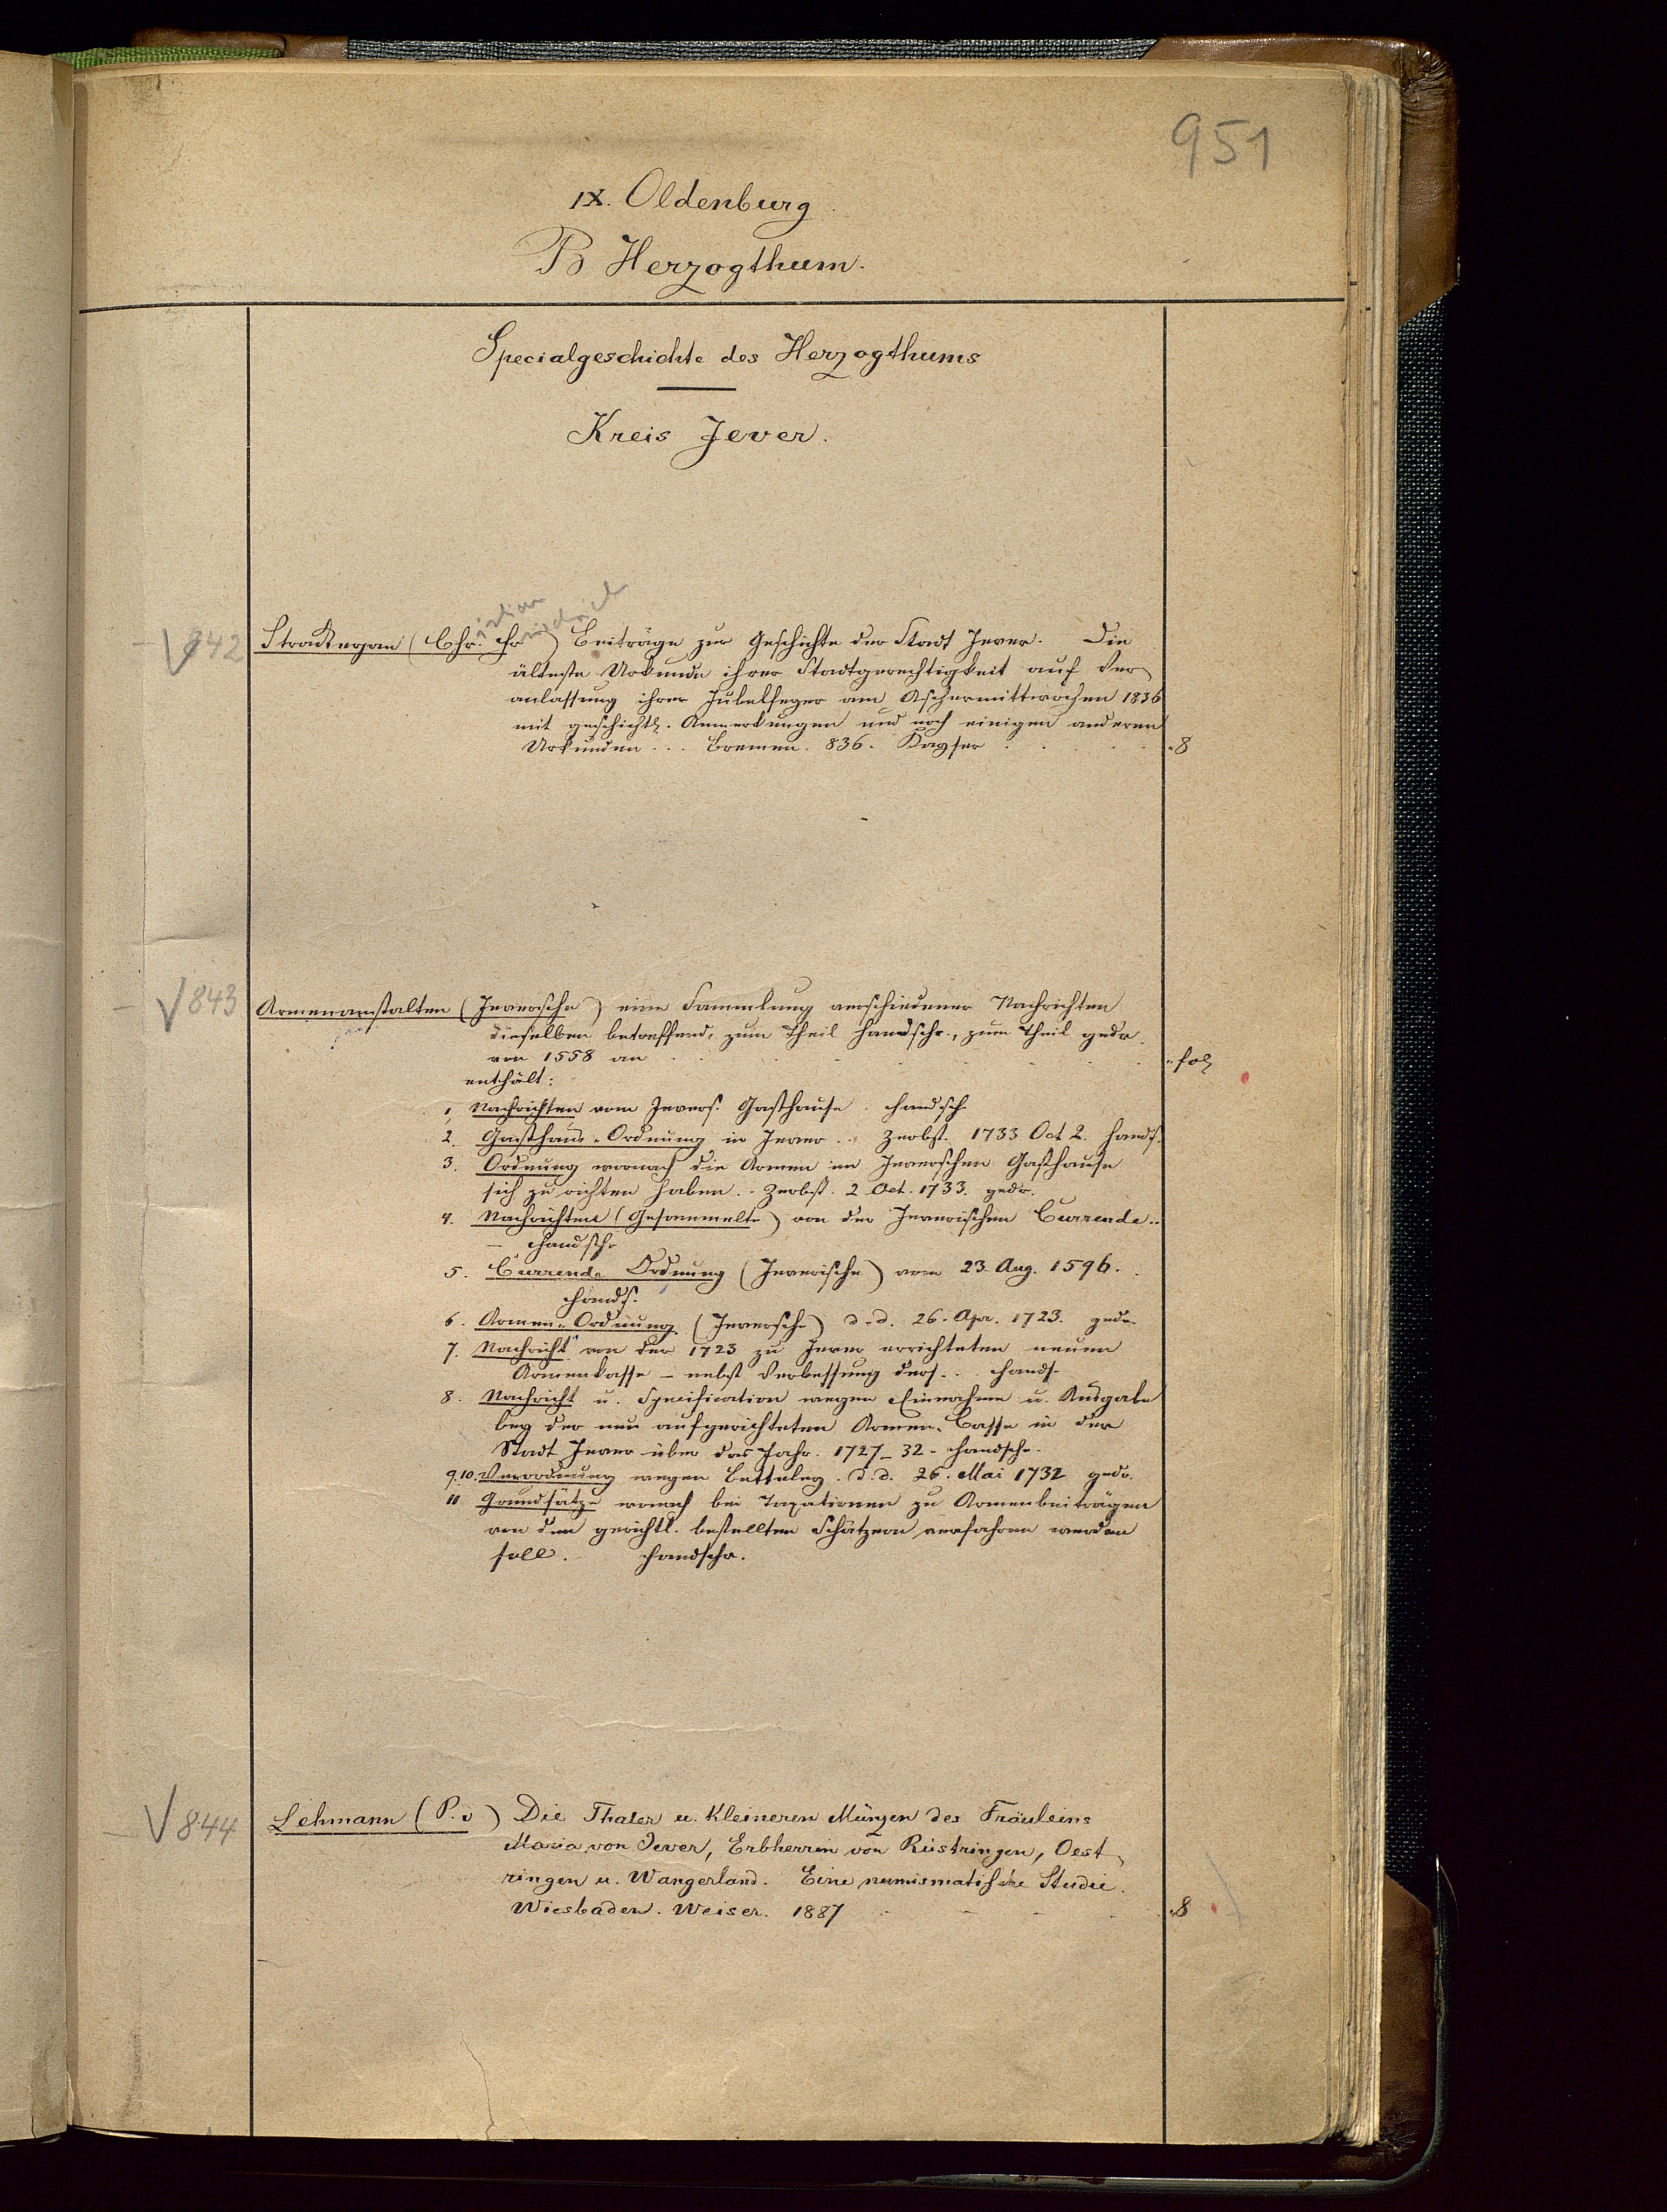 951
IX. Oldenburg
B Herzogthum.
Specialgeschichte des Herzogthums
Kreis Jever.
842 Strackerjan (Chr. Fr ) Beiträge zur Geschichte der Stadt Jever. Die
istian iedrich
älteste Urkunde ihrer Stadtgerechtigkeit auf Ver
anlassung ihrer Jubelfeyer am Aschermittwochen 1836
mit geschichtl. Anmerkungen und noch einigen anderen
Urkunden... Bremen. 836. Kayser . . . . 8
843 Armenanstalten (Jeversche) eine Sammlung verschiedener Nachrichten
dieselben betreffend, zum Theil handschr., zum Theil gedr.
von 1558 an . . . . fol
enthält:
1, Nachrichten vom Jevers. Gasthause. handsch
2. Gasthaus-Ordnung in Jever .. Zerbst. 1733 Oct 2. hands.
3. Ordnung wornach die Armen im Jeverschen Gasthause
sich zu richten haben. - Zerbst. 2 Oct. 1733. gedr.
4. Nachrichten (Gesammelte) von der Jeverischen Currende..
– handschr
5. Currende Ordnung (Jeverische) vom 23. Aug. 1596.
hands.
6. Armen-Ordnung. (Jeversche) d.d. 26. Apr. 1723. gedr.
7. Nachricht von der 1723 zu Jever errichteten neuen
Armenkasse – nebst Verbesserung ders... hands.
8. Nachricht u. Specification wegen Einnahme u. Ausgabe
bey der neu aufgerichteten Armen-Casse in der
Stadt Jever über das Jahr. 1727_32 - handschr.
9.10. Verordnung wegen Betteley. d.d. 26. Mai 1732 gedr.
11 Grundsätze wonach bei Taxationen zu Armenbeiträgen
von den gerichtl. bestellten Schätzern verfahren werden
soll. handschr.
844 Lehmann (P. v) Die Thaler u. kleineren Münzen des Fräuleins
Maria von Jever, Erbherrin von Rüstringen, Oest
ringen u. Wangerland. Eine numismatische Studie.
Wiesbaden. Weiser. 1887 . . . . 8